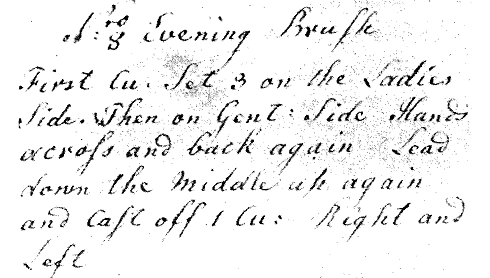 N:ro 8 Evening Brush
First Cu. Set 3 on the Ladies
Side. Then on Gent: Side Hands
acroſs and back again Lead
down the Middle up again
and Caſt off 1 Cu: Right and
Left